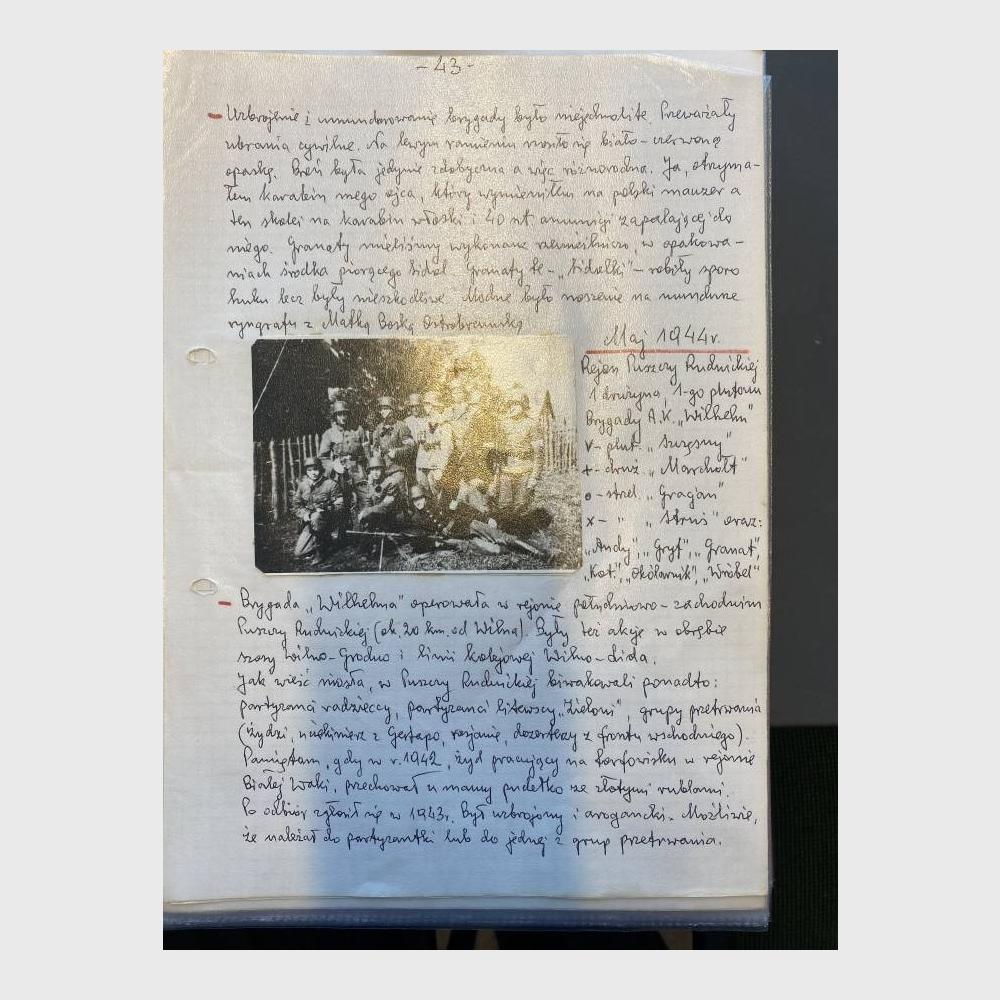 -43-
- Uzbrojenie i umundurowanie brygady było niejednolite. Przeważały
ubrania cywilne. Na lewym ramieniu nosiło się biało-czerwoną
opaskę. Broń była jedynie zdobyczna a więc różnorodna. Ja, otrzyma-
łem karabin mego ojca, który wymieniłem na polski mauzer a
ten skolei na karabin włoski i 40 szt. amunicji zapalającej do
niego. Granaty mieliśmy wykonane rzemieślniczo, w opakowa-
niach środka piorącego Sidol. Granaty te - "Sidolki" - robiły sporo
huku lecz były nieszkodliwe. Modne było noszenie na mundurze
ryngrafu z Matką Boską Ostrobramską
Maj 1944r.
Rejon Puszczy Rudnickiej
1 drużyna, 1-go plutonu
Brygady A.K. "Wilhelm"
v - plut. "Szczęsny"
+ - druż. "Marchołt"
o - strzel. "Gragan"
x - " "Struś" oraz:
"Andy", "Gryf", "Granat",
"Kot", "Okólarnik", "Wróbel"
- Brygada "Wilhelma" operowała w rejonie południowo-zachodnim
Puszczy Rudnickiej (ok. 20 km. od Wilna). Były też akcje w obrębie
szosy Wilno-Grodno i linii kolejowej Wilno-Lida.
Jak wieść niosła, w Puszczy Rudnickiej biwakowali ponadto:
partyzanci radzieccy, partyzanci litewscy "Zieloni", grupy przetrwania
(żydzi, uciekinierzy z Gestapo, rosjanie, dezerterzy z frontu wschodniego).
Pamiętam, gdy w r. 1942, żyd pracujący na torfowisku w rejonie
Białej Waki, przechował u mamy pudełko ze złotymi rublami.
Po odbiór zgłosił się w 1943r. Był uzbrojony i arogancki. Możliwie,
że należał do partyzantki lub do jednej z grup przetrwania.